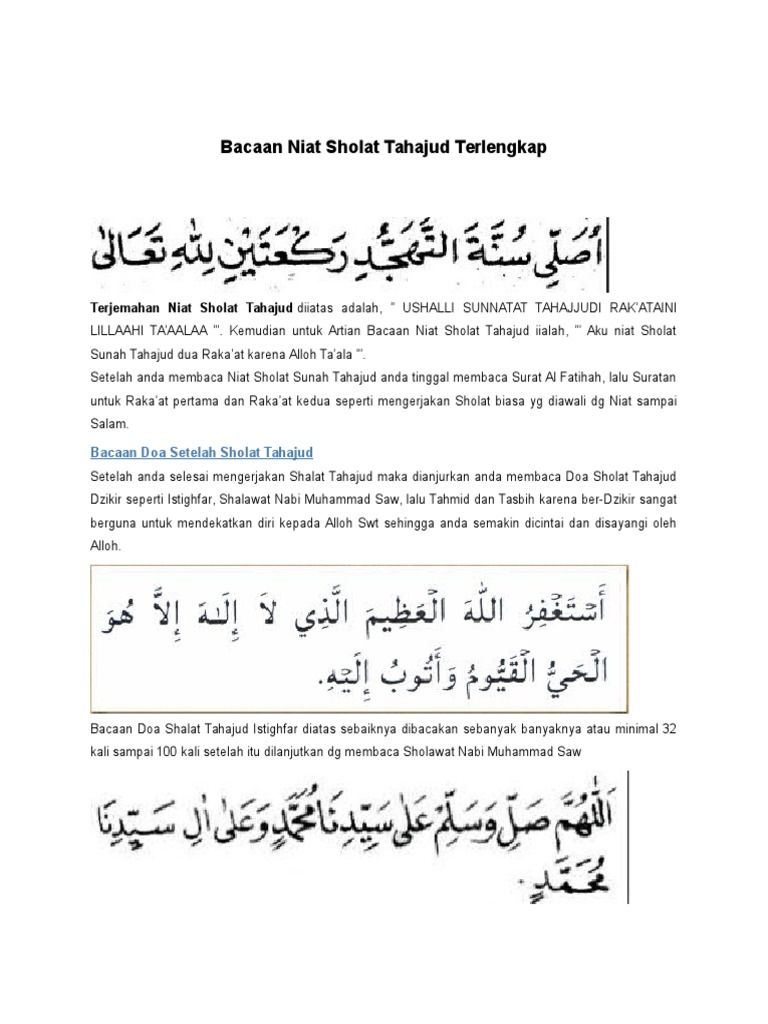 Bacaan Niat Sholat Tahajud Terlengkap
اُصَلِّى سُنَّةَ التَّهَجُّدِ رَكْعَتَيْنِ لِلّٰهِ تَعَالٰى
Terjemahan Niat Sholat Tahajud diiatas adalah, “ USHALLI SUNNATAT TAHAJJUDI RAK’ATAINI
LILLAAHI TA’AALAA ”’. Kemudian untuk Artian Bacaan Niat Sholat Tahajud iialah, ”’ Aku niat Sholat
Sunah Tahajud dua Raka’at karena Alloh Ta’ala ”’.
Setelah anda membaca Niat Sholat Sunah Tahajud anda tinggal membaca Surat Al Fatihah, lalu Suratan
untuk Raka’at pertama dan Raka’at kedua seperti mengerjakan Sholat biasa yg diawali dg Niat sampai
Salam.
Bacaan Doa Setelah Sholat Tahajud
Setelah anda selesai mengerjakan Shalat Tahajud maka dianjurkan anda membaca Doa Sholat Tahajud
Dzikir seperti Istighfar, Shalawat Nabi Muhammad Saw, lalu Tahmid dan Tasbih karena ber-Dzikir sangat
berguna untuk mendekatkan diri kepada Alloh Swt sehingga anda semakin dicintai dan disayangi oleh
Alloh.
أَسْتَغْفِرُ اللهَ الْعَظِيمَ الَّذِي لاَ إِلَـٰهَ إِلاَّ هُوَ
الْحَيُّ الْقَيُّومُ وَأَتُوبُ إِلَيْهِ.
Bacaan Doa Shalat Tahajud Istighfar diatas sebaiknya dibacakan sebanyak banyaknya atau minimal 32
kali sampai 100 kali setelah itu dilanjutkan dg membaca Sholawat Nabi Muhammad Saw
اَللّٰهُمَّ صَلِّ وَسَلِّمْ عَلٰى سَيِّدِنَا مُحَمَّدٍ وَعَلٰى اٰلِ سَيِّدِنَا
مُحَمَّدٍ.